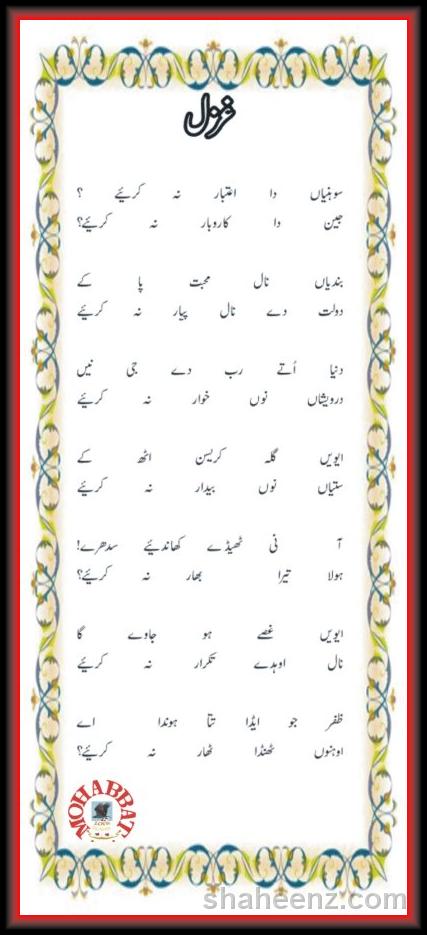 غزل
سوہنیاں دا اعتبار نہ کرئیے ؟
جین دا کاروبار نہ کرئیے؟
بندیاں نال محبت پا کے
دولت دے نال پیار نہ کرئیے
دنیا اُتے رب دے جی نیں
درویشاں نوں خوار نہ کرئیے
ایویں گلہ کریسن اٹھ کے
ستیاں نوں بیدار نہ کرئیے
آ نی ٹھیڈے کھاندئیے سدھرے!
ہولا تیرا بھار نہ کرئیے؟
ایویں غصے ہو جاوے گا
نال اوہدے تکرار نہ کرئیے
ظفر جو ایڈا تتا ہوندا اے
اوہنوں ٹھنڈا ٹھار نہ کرئیے؟
MOHABBAT
shaheenz.com